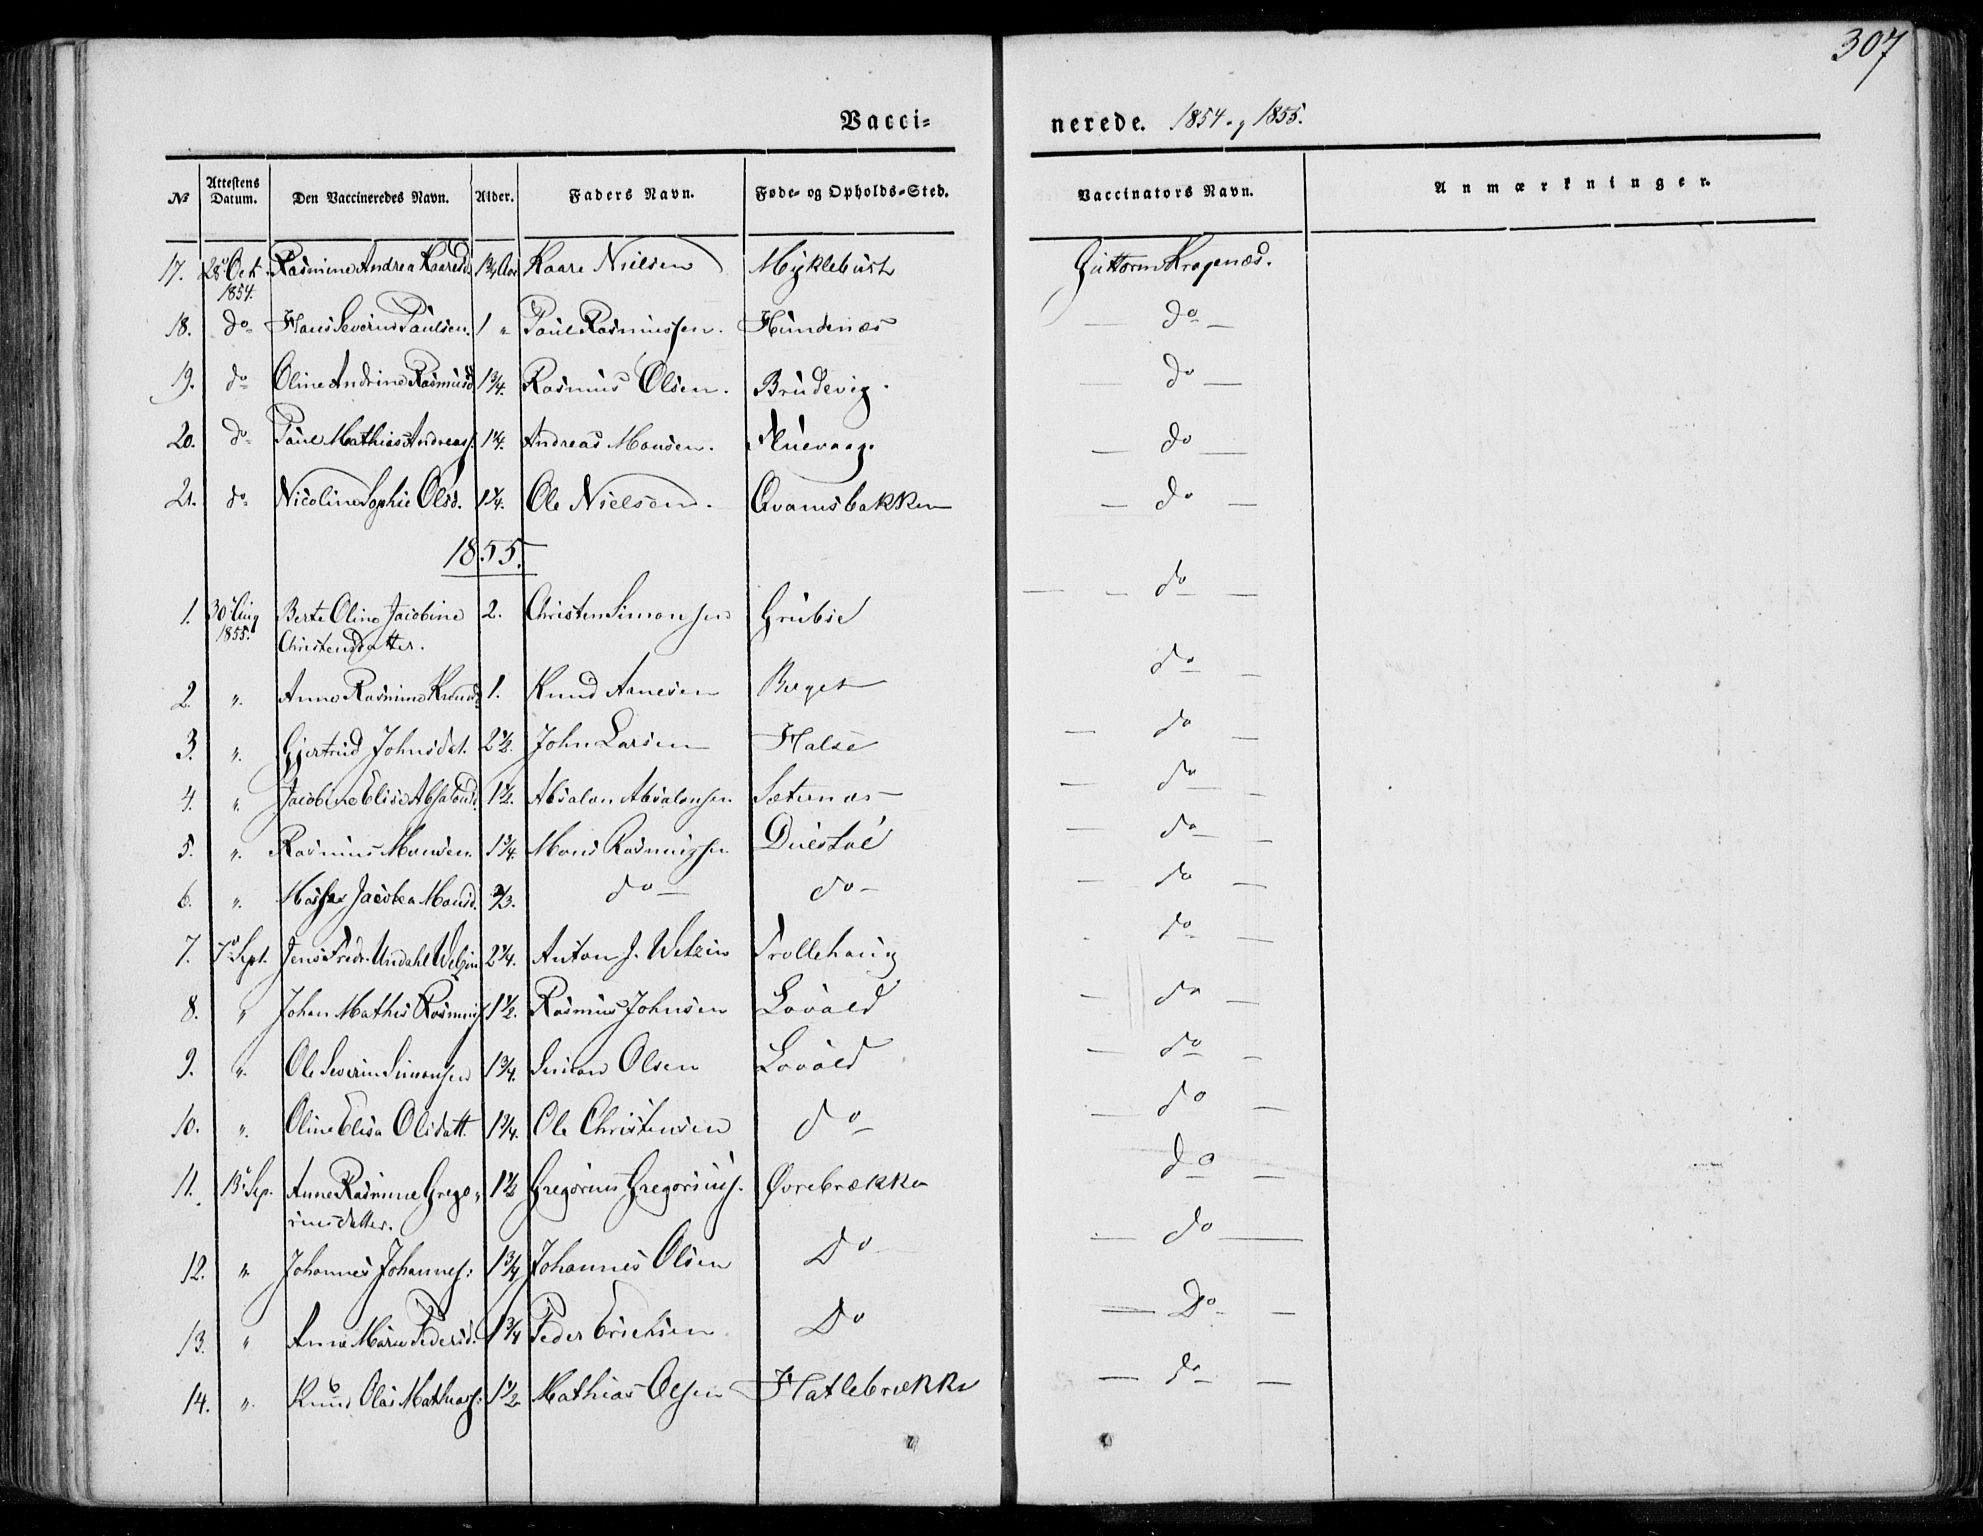 307
Vacci-
nerede. 1854 og 1855.
No Attestens Datum. Den Vaccineredes Navn. Alder. Faders Navn. Føde- og Opholds-Sted. Vaccinators Navn. Anmærkninger.
17. 28 Oct. 1854. Rasmine Andrea Kaaresd. 1 3/4 Aar Kaare Nielsen Myklebust Guttorm Kragenæs.
18. do Hans Severin Paulsen. 1 " Paul Rasmussen. Hundenæs do
19. do Oline Andrine Rasmusd 1 3/4. Rasmus Olsen. Brudevig. do
20. do Paul Mathias Andreas. 1 1/4. Andreas Monsen. Fluevaag. do
21. do Nicoline Sophie Olsd. 1 1/4. Ole Nielsen. Qvamsbakken do
1855.
1. 30 Aug 1855. Berte Oline Jacobine 2. Christen Simonsen Grubse do
Christensdatter.
2. ". Anne Rasmine Knuds 1. Knud Arnesen Berget do
3. ". Gjertrud Johnsdat. 2 1/2. John Larsen Halse do
4. ". Jacobine Elise Absalons 1 1/2. Absalon Absalonsen Sæternæs do
5. ". Rasmus Monsen. 1 1/4. Mons Rasmussen Duestøl do
6. ". Jacobea Monsd. 2/3. do do do
7. 7 Sept. Jens Fredr. Undahl Welzin 2 1/4. Anton J. Welzin Trollehaug do
8. " Johan Mathis Rasmus 1 1/2. Rasmus Johnsen Lovold do
9. ". Ole Severin Simonsen 1 3/4. Simon Olsen Lovold do
10. ". Oline Elisa Olsdatt. 1 3/4. Ole Christensen do do
11. 13 Sep. Anne Rasmine Grego- 1 1/2 Gregorius Gregorius. Øvrebrække do
riusdatter.
12. ". Johannes Johannes: 1 3/4 Johannes Olsen Do do
13. " Anne Marie Pedersd. 1 3/4 Peder Erichsen Do Do
14. ". Knud Olai Mathias: 1 1/2 Mathias Olsen Hatlebrække do